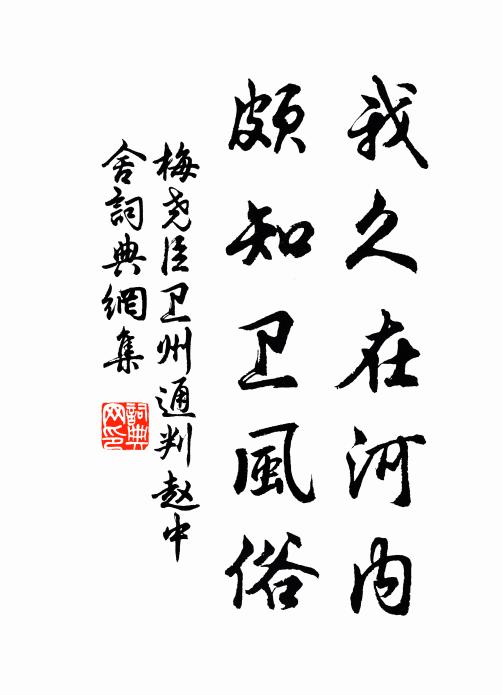 我久在河内
頗知卫風俗
梅尧臣卫州通判赵中
舍詞典網集
詞典网印